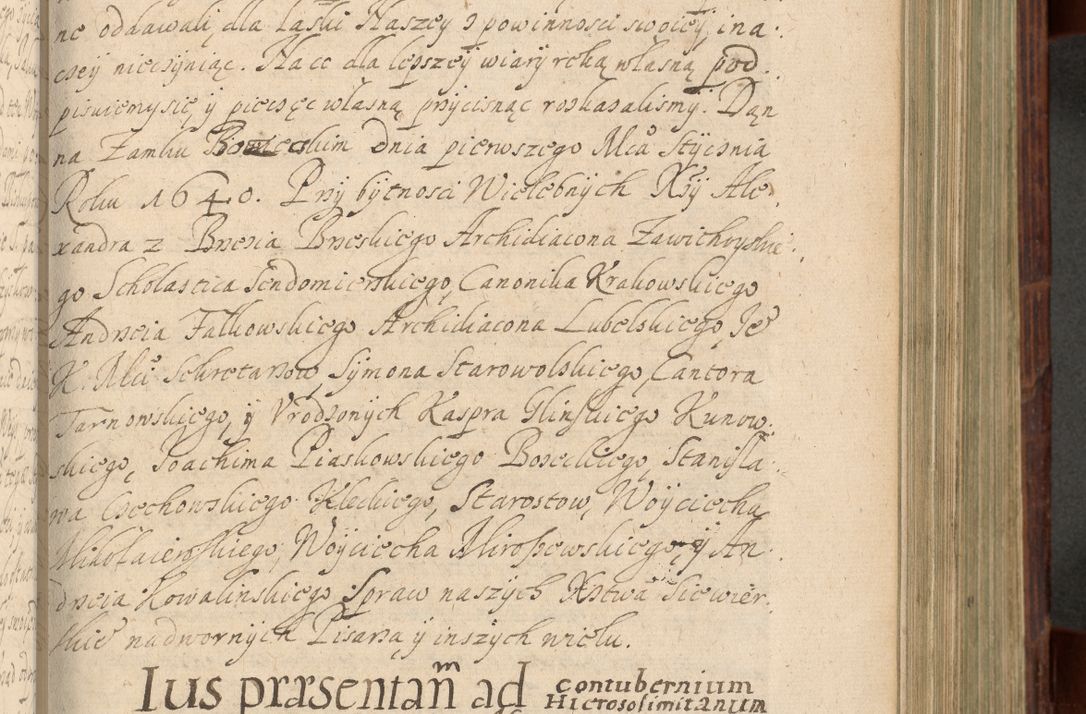 ne oddawali, dla łaski Naszey y powinnosci swoiey, ina
czey nieczyniąc. Na co dla lepszey wiary ręką własną pod
pisuiemy się, y pieczęc własną przycisnąc roskazalismy. Dan
na Zamku dnia pierwszego Mca Stycznia
Roku 1640. Przy bytnosci Wielebnych Xży Ale
xandra z Brzezia Brzeskiego Archidiacona Zawichoyski
go Scholastica Sendomierskiego, Canonika Krakowskiego
Andrzeia Falkowskiego Archidiacona Lubelskiego, Je°
K. Mci Sekretarzow, Symona Starowolskiego, Cantora
Tarnowskiego, y Vrodzonych Kaspra Glinskiego Kunow
skiego, Joachima Piaskowskiego Bozeckiego, Stanisła
wa Czechowskiego Kleckiego, Starostow, Woyciecha
Mikołaiewskiego, Woyciecha Miroszewskiego, y An
drzeia Kowalinskiego Spraw naszych Xstwa Siewier
skie° nadwornych Pisarza y inszych wielu.
Ius præsentan̄m ad contubernium
Hierosolimitanum